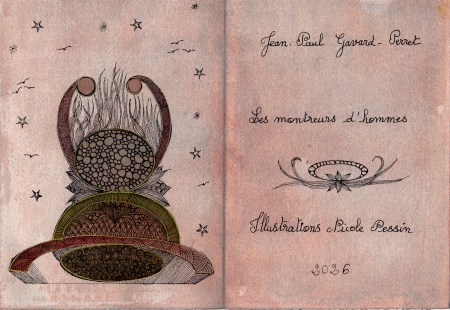 Jean-Paul Gavard-Perret
Les montreurs d'hommes
Illustrations Nicole Pessin
2026